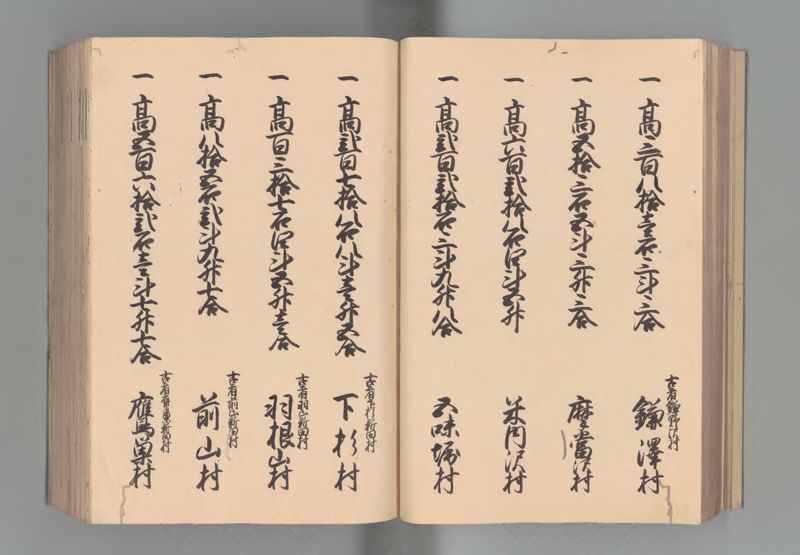 一 高三百八拾壱石三斗三合
古者鎌野沢村
鎌澤村
一 高五拾三石五斗三升三合
摩當沢村
一 高六百弐拾八石四斗五升
米内沢村
一 高弐百弐拾石三斗九升八合
五味堀村
一 高弐百七拾八石八斗壱升五合
古者下杉新田村
下杉村
一 高百三拾七石四斗五升壱合
古者羽山新田村
羽根山村
一 高八拾五石弐斗九升七合
古者前山新田村
前山村
一 高五百六拾弐石壱斗七升七合
鷹巣村